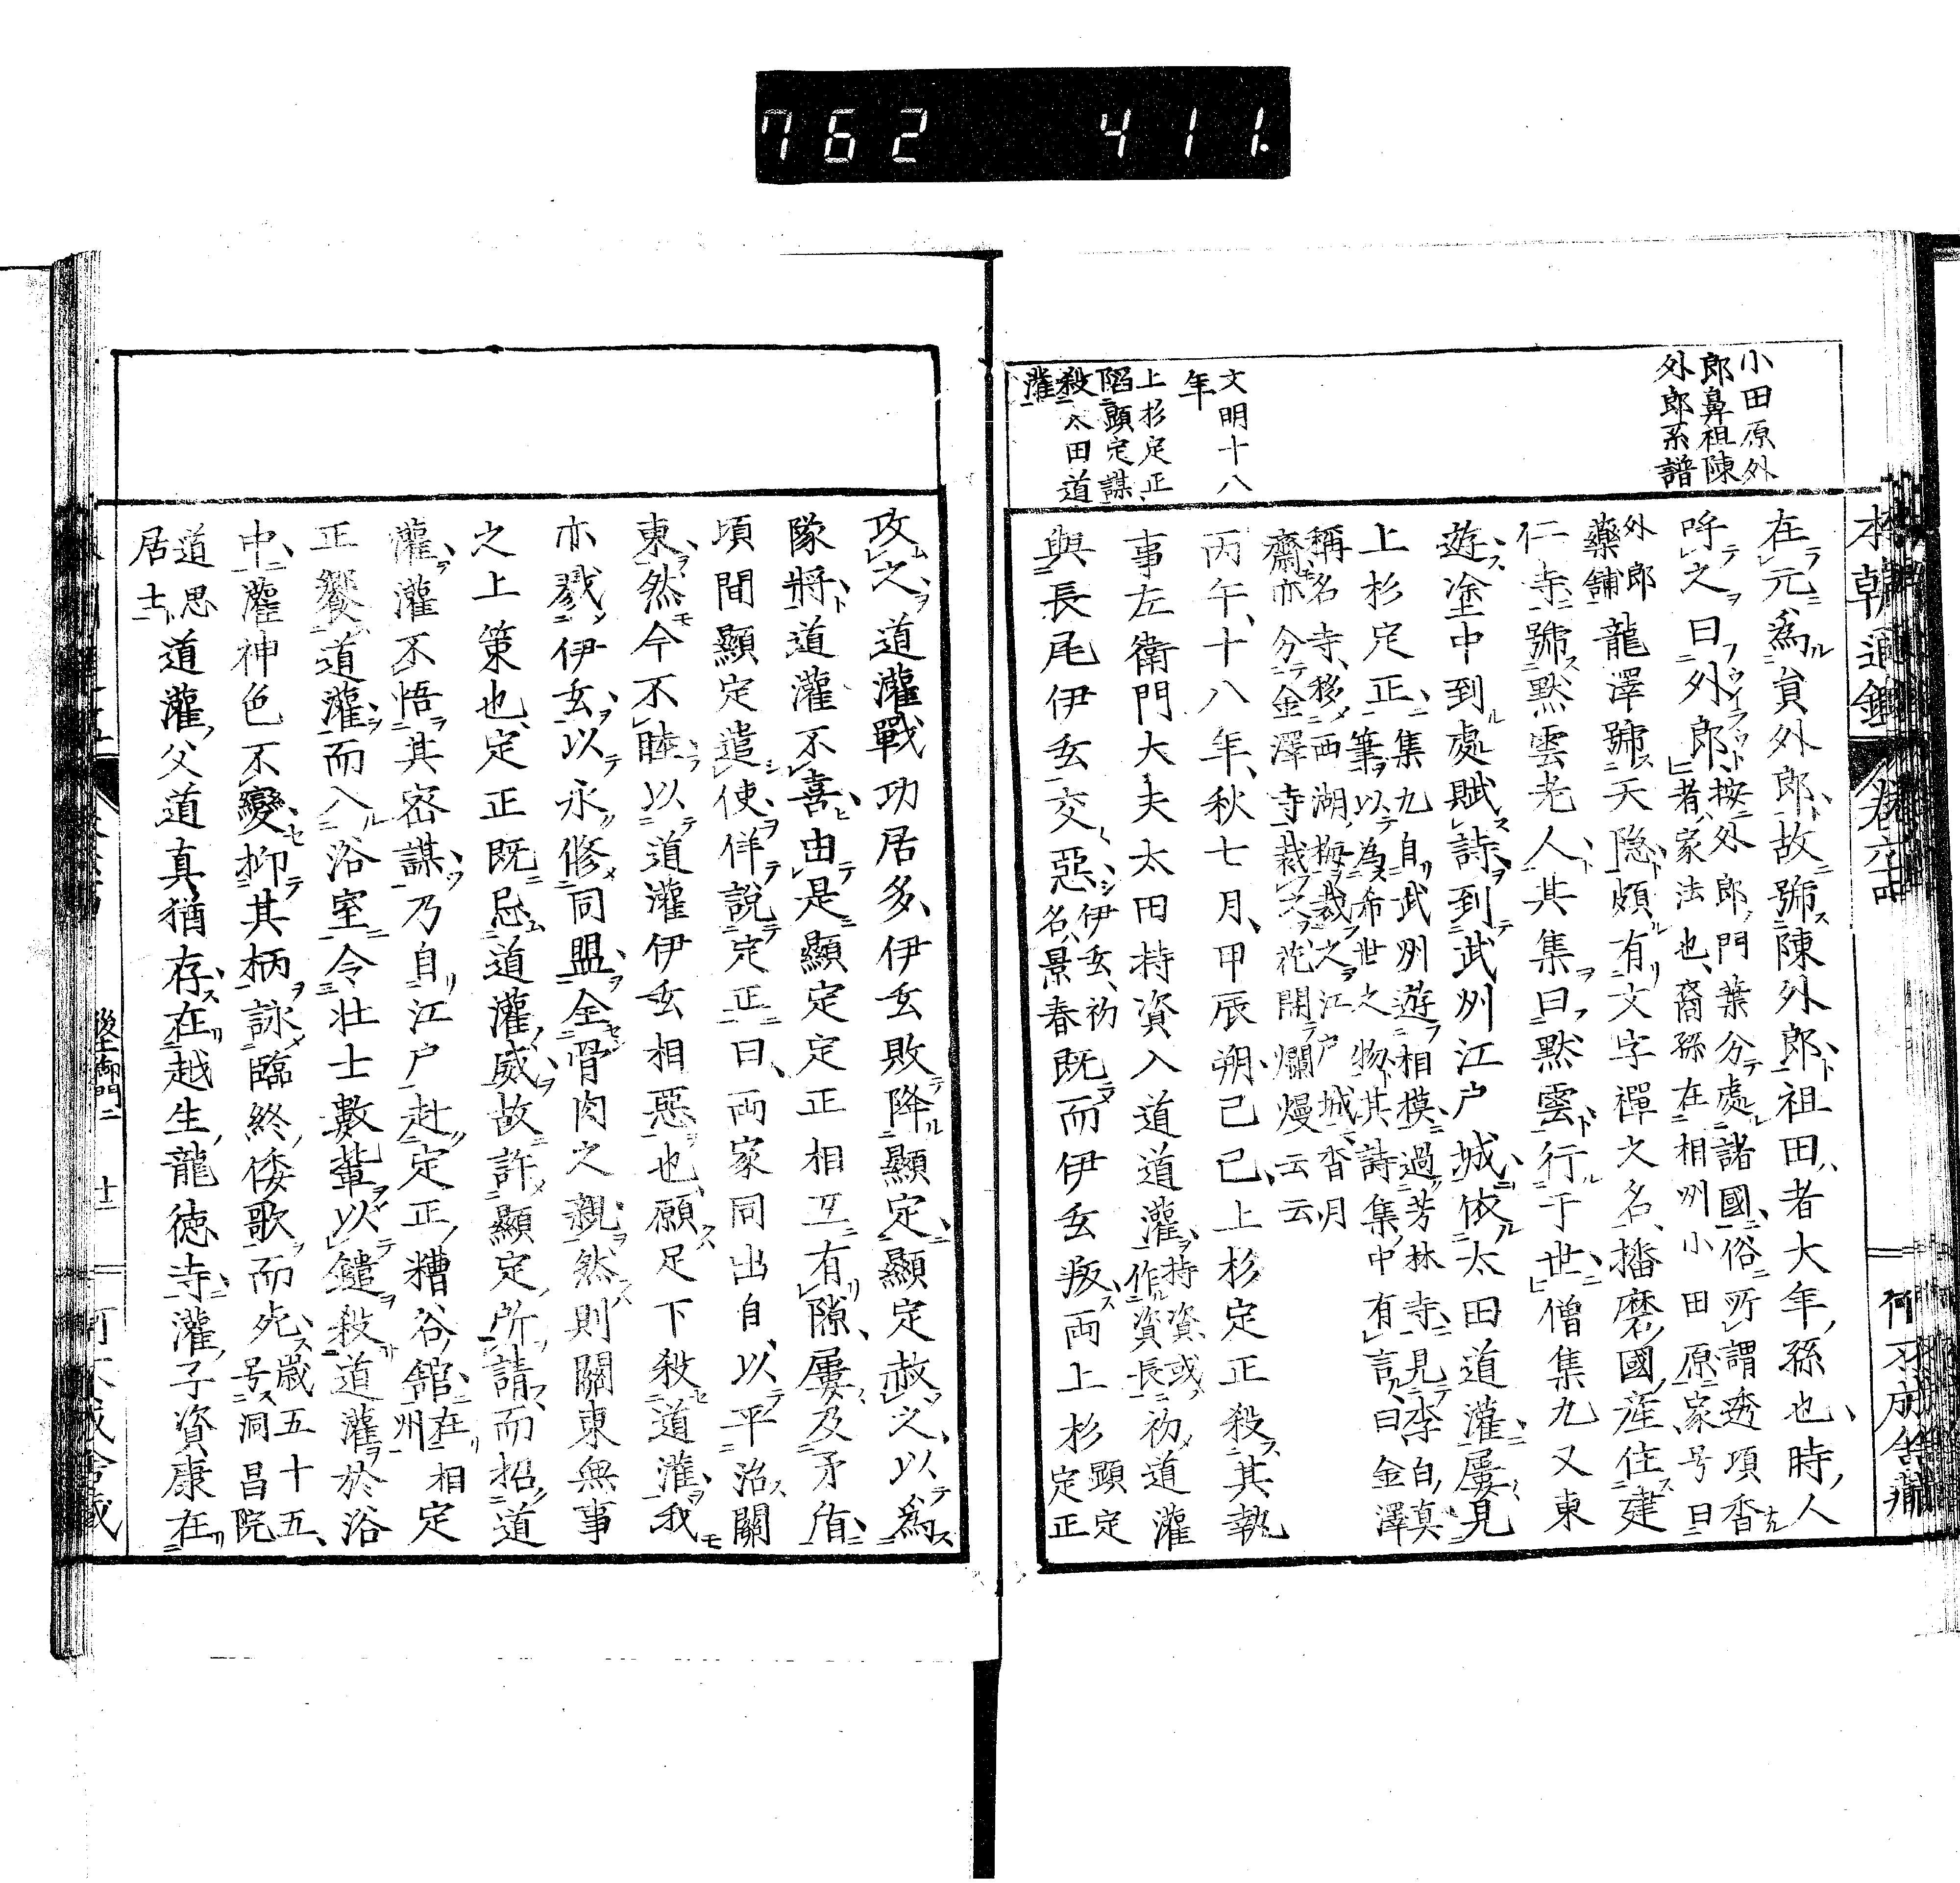 762 411.
小田原外
郎鼻祖陳
外郎系譜
文明十八
年
上杉定正
陷顯定謀
殺太田道
灌
本朝通鑑 卷六
何不成舎蔵
在元爲員外郎故號陳外郎祖田者大年孫也時人
呼之曰外郎按外郎門葉分處諸國俗所謂透項香
者家法也裔孫在相州小田原家号曰
外郎
藥舗龍澤號天隐頗有文字禪之名播磨國產住建
仁寺號黙雲老人其集曰黙雲行于世僧集九又東
遊塗中到處賦詩到武州江户城依太田道灌屢見
上杉定正集九自武州遊相模過芳林寺見李白真
筆以為希世之物其詩集中有言曰金澤
稱名寺移西湖梅裁之江户城杏月
齋亦分金澤寺裁之花開爛熳云云
丙午十八年秋七月甲辰朔己巳上杉定正殺其執
事左衛門大夫太田持資入道道灌持資或
作資長初道灌
與長尾伊玄交惡伊玄初
名景春既而伊玄叛両上杉顯定
定正
攻之道灌戰功居多伊玄敗降顯定顯定赦之以爲
隊將道灌不喜由是顯定定正相互有隙屢及矛盾
頃間顯定遣使佯説定正曰両家同出自以平治關
東然今不睦以道灌伊玄相惡也願足下殺道灌我
亦戮伊玄以永修同盟全骨肉之親然則關東無事
之上策也定正既忌道灌威故許顯定所請而招道
灌灌不悟其密謀乃自江户赴定正糟谷舘在相
州定
正饗道灌而入浴室令壮士數輩以鑓殺道灌於浴
中灌神色不變抑其柄詠臨終倭歌而死歳五十五
号洞昌院
道思
居士道灌父道真猶存在越生龍徳寺灌子資康在
後土御門二 十一